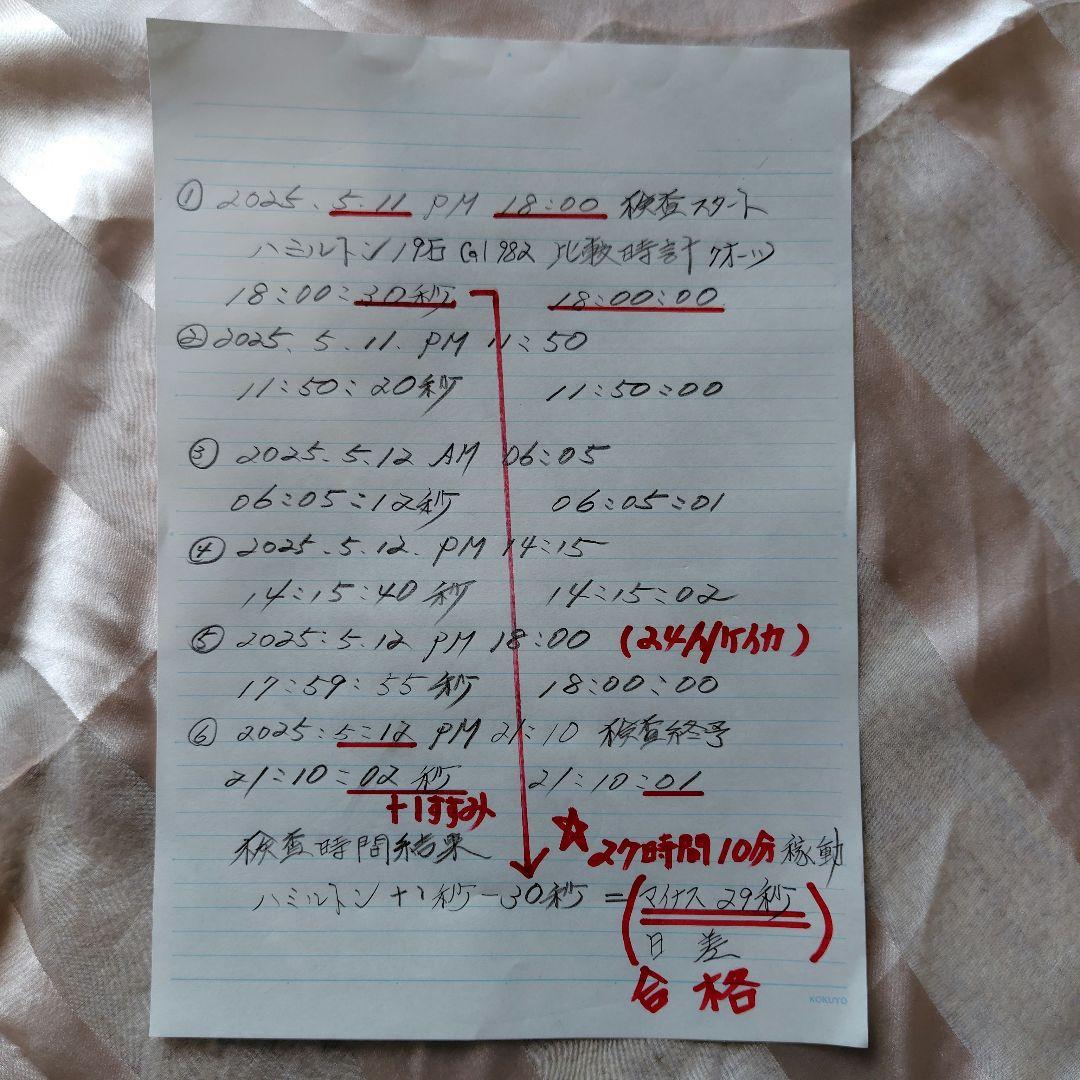 ① 2025. 5.11 PM 18:00 検査スタート
ハミルトン 19石 Cal 982 比較時計 クオーツ
18:00:30秒 18:00:00
② 2025. 5.11. PM 11:50
11:50:20秒 11:50:00
③ 2025.5.12 AM 06:05
06:05:12秒 06:05:01
④ 2025.5.12. PM 14:15
14:15:40秒 14:15:02
⑤ 2025:5.12 PM 18:00
17:59:55秒 18:00:00
⑥ 2025:5:12 PM 21:10 検査終予
21:10:02秒 21:10:01
+1すすみ
検査時間結果 ☆27時間10分稼動
ハミルトン +1秒-30秒=(マイナス29秒)
日差
合格
KOKUYO